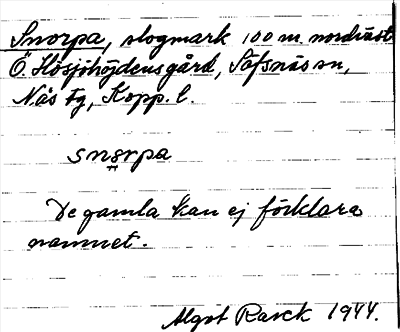 Snorpa, slogmark 100 m. nordväst
Ö. Hösjöhöjdens gård, Säfsnäs sn,
Nås tg, Kopp. l.
snɷrpa
De gamla kan ej förklara
namnet.
Algot Rask 1944.